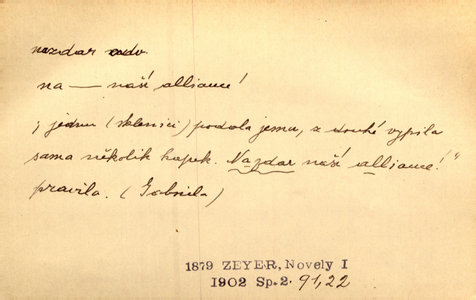 nazdar adv.
na — naší alliance!
„ jednu (sklenici) podala jemu, z druhé vypila
sama několik kapek. Nazdar naší alliance!“
pravila. (Gabriela)
1879 ZEYER, Novely I
1902 Sp. 2. 91,22